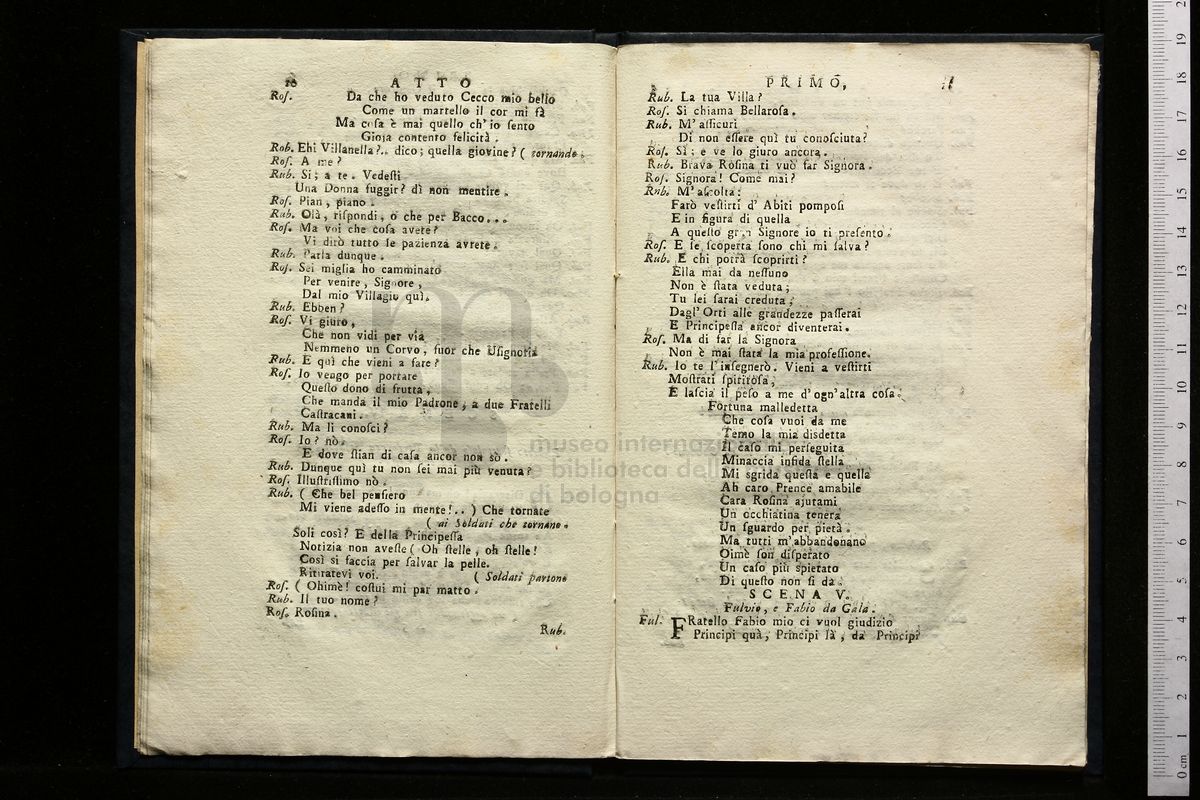 10 ATTO
Roſ. Da che ho veduto Cecco mio bello
Come un martello il cor mi fà
Ma coſa è mai quello ch' io ſento
Gioja contento felicità .
Rob. Ehi Villanella ?.. dico ; quella giovine ? ( tornando .
Roſ. A me ?
Rub. Si ; a te . Vedeſti
Una Donna fuggir ? dì non mentire .
Roſ. Pian , piano .
Rub. Olà , riſpondi , o che per Bacco...
Roſ. Ma voi che coſa avete ?
Vi dirò tutto ſe pazienza avrete .
Rub. Parla dunque .
Roſ. Sei miglia ho camminato
Per venire , Signore ,
Dal mio Villagio quì .
Rub. Ebben ?
Roſ. Vi giuro ,
Che non vidi per via
Nemmeno un Corvo , fuor che Uſignoria
Rub. E quì che vieni a fare ?
Roſ. Io vengo per portare
Queſto dono di frutta ,
Che manda il mio Padrone , a due Fratelli
Caſtracani .
Rub. Ma li conoſci ?
Roſ. Io ? nò .
E dove ſtian di caſa ancor non sò .
Rub. Dunque quì tu non ſei mai più venuta ?
Roſ. Illuſtriſſimo nò .
Rub. ( Che bel penſiero
Mi viene adeſſo in mente !.. ) Che tornate
( ai Soldati che tornano .
Soli così ? E della Principeſſa
Notizia non aveſte ( Oh ſtelle , oh ſtelle !
Così si faccia per ſalvar la pelle .
Ritiratevi voi. ( Soldati partono
Roſ. ( Ohimè ! coſtui mi par matto .
Rub. Il tuo nome ?
Roſ. Roſina .
Rub.
PRIMO, 11
Rub. La tua Villa ?
Roſ. Si chiama Bellaroſa .
Rub. M' aſſicuri
Di non eſſere quì tu conoſciuta ?
Roſ. Sì ; e ve lo giuro ancora .
Rub. Brava Roſina ti vuò far Signora .
Roſ. Signora ! Come mai ?
Rub. M' aſcolta :
Farò veſtirti d' Abiti pompoſi
E in figura di quella
A queſto gran Signore io ti preſento .
Roſ. E ſe ſcoperta ſono chi mi ſalva ?
Rub. E chi potrà ſcoprirti ?
Ella mai da neſſuno
Non è ſtata veduta ;
Tu lei ſarai creduta ;
Dagl' Orti alle grandezze paſſerai
E Principeſſa ancor diventerai .
Roſ. Ma di far la Signora
Non è mai ſtata la mia profeſſione.
Rub. Io te l' inſegnerò . Vieni a veſtirti
Moſtrati ſpiritoſa ,
E laſcia il peſo a me d' ogn' altra coſa .
Fortuna malledetta
Che coſa vuoi da me
Temo la mia disdetta
Il caſo mi perſeguita
Minaccia infida ſtella
Mi sgrida queſta e quella
Ah caro Prence amabile
Cara Roſina ajutami
Un occhiatina tenera
Un ſguardo per pietà .
Ma tutti m' abbandonano
Oimè ſon diſperato
Un caſo più ſpietato
Di queſto non ſi da .
SCENA V.
Fulvio , e Fabio da Gala .
Ful. FRatello Fabio mio ci vuol giudizio
Principi quà , Principi là , da Principi
museo internaz
e biblioteca dell
di bologna